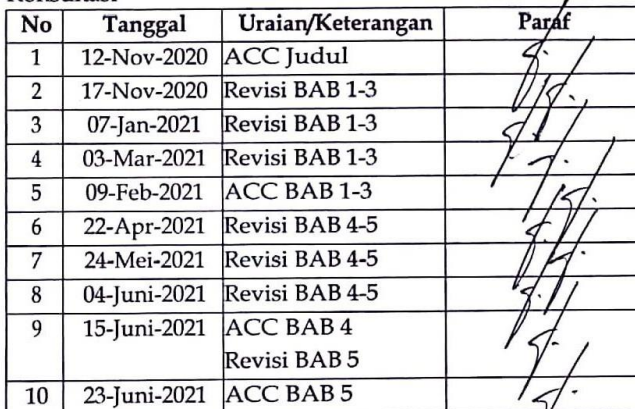 No Tanggal Uraian/Keterangan Paraf
1 12-Nov-2020 ACC Judul
2 17-Nov-2020 Revisi BAB 1-3
3 07-Jan-2021 Revisi BAB 1-3
4 03-Mar-2021 Revisi BAB 1-3
5 09-Feb-2021 ACC BAB 1-3
6 22-Apr-2021 Revisi BAB 4-5
7 24-Mei-2021 Revisi BAB 4-5
8 04-Juni-2021 Revisi BAB 4-5
9 15-Juni-2021 ACC BAB 4
Revisi BAB 5
10 23-Juni-2021 ACC BAB 5